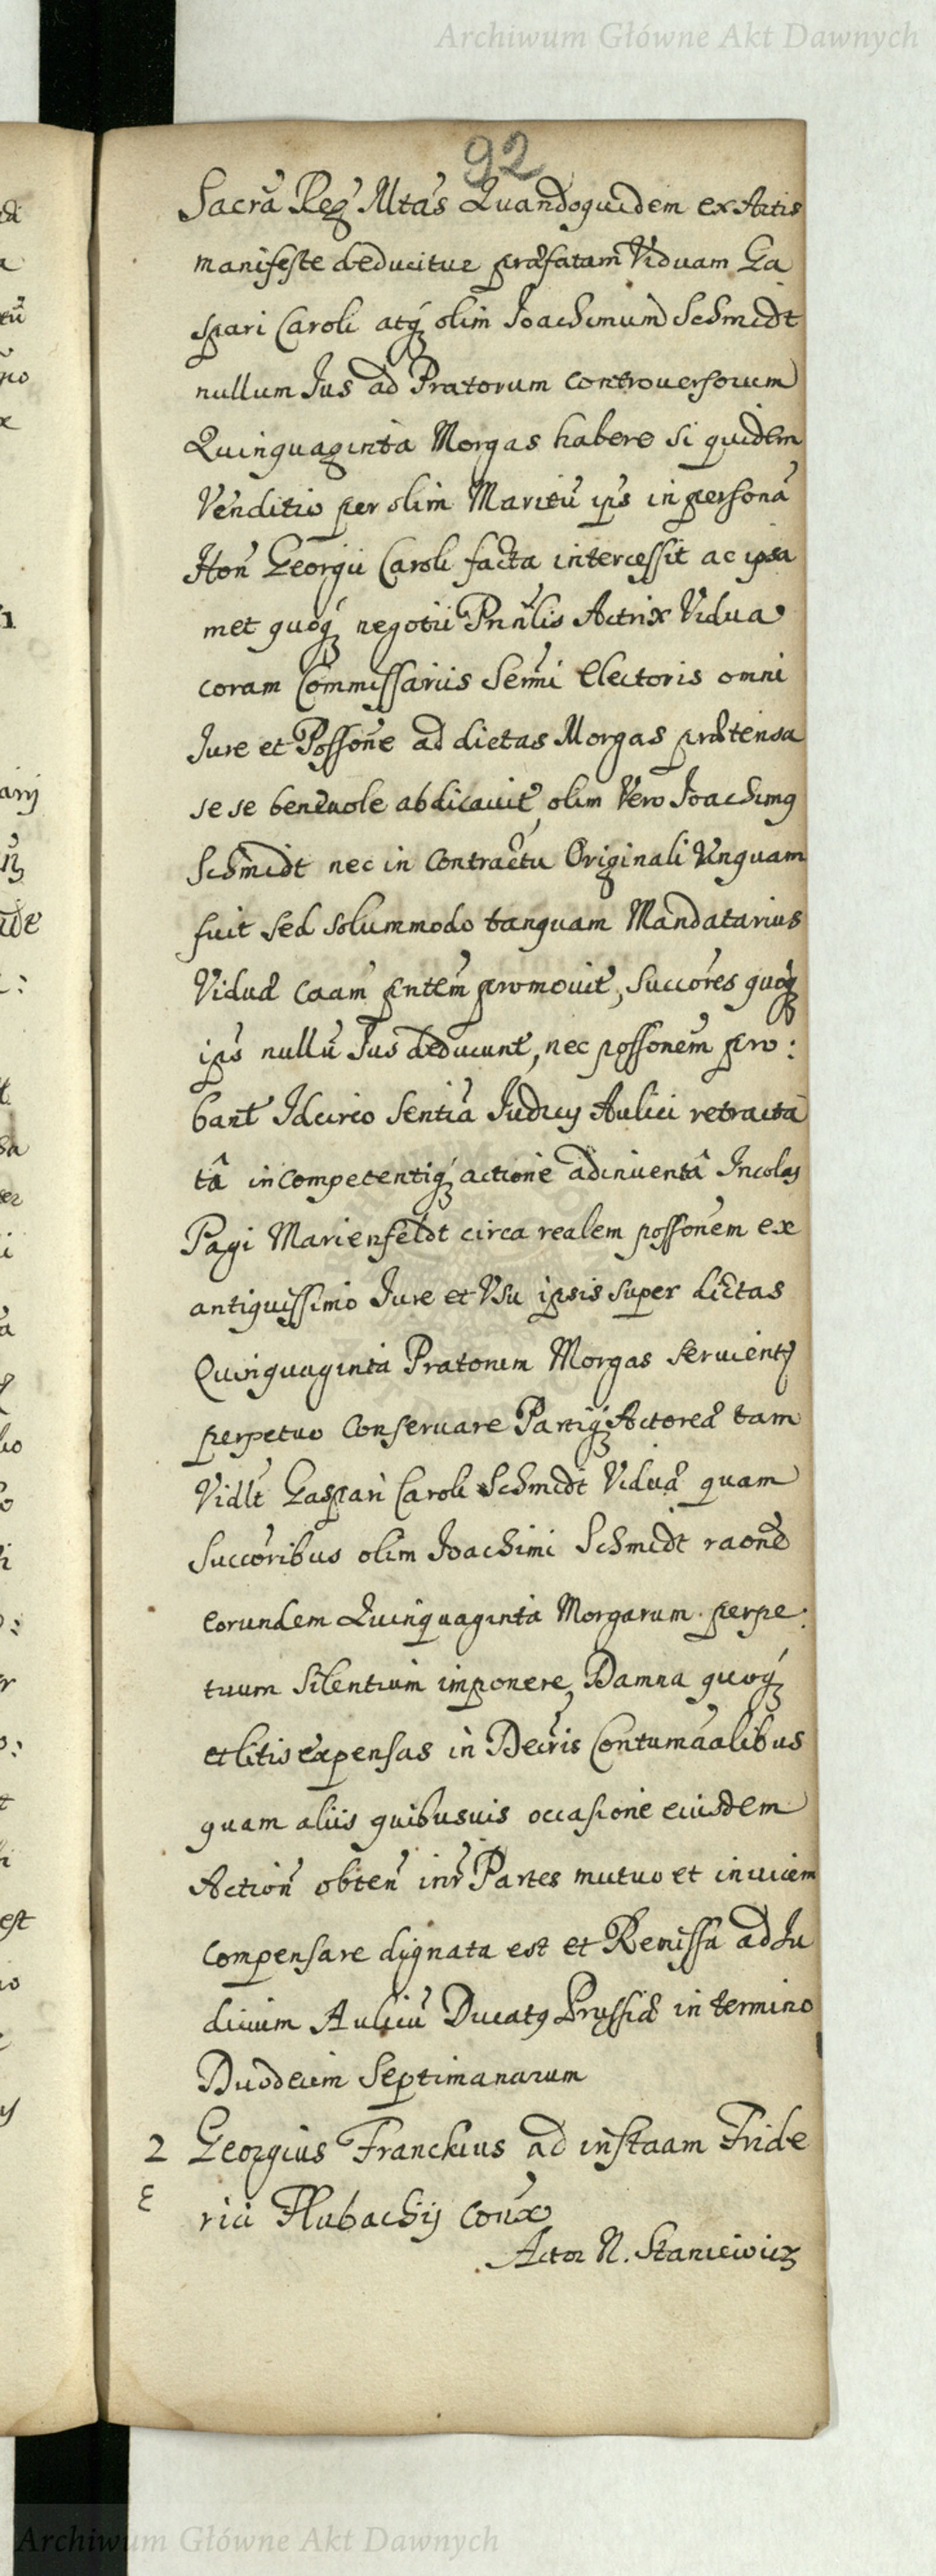 Archiwum Główne Akt Dawnych
92
Sacra Reg Mtas Quandoquidem ex Actis
manifeste deducitur præfatam Viduam Ga
spari Caroli atq olim Joachimum Schmidt
nullum Jus ad Pratorum controversorum
Quinquaginta Morgas habere si quidem
Venditio per olim Maritu ips in persona
Hon Georgii Caroli facta intercessit ac ipsa
met quoq negotii Pnnlis Actrix Vidua
coram Commissariis Sermi Electoris omni
Jure et Possone ad dictas Morgas prætensa
se se benevole abdicavit, olim Vero Joachimq
Schmidt nec in Contractu Originali Unquam
fuit sed solummodo tanquam Mandatarius
Viduæ caam pntem promovit, Succores quoq
ips nullu Jus deducunt, nec possonem pro:
bant Idcirco Sentia Judicy Aulici retracta
tâ incompetentiq actione adinventâ Incolas
Pagi Marienfeldt circa realem possonem ex
antiquissimo Jure et Usu ipsis super dictas
Quinquaginta Pratorum Morgas servient
perpetuo Conservare Partiq Actoreæ tam
Vidlt Gaspari Caroli Schmidt Viduæ quam
Succoribus olim Joachimi Schmidt raone
eorundem Quinquaginta Morgarum perpe:
tuum Silentium imponere, Damna quoq
et litis expensas in Decris Contumacialibus
quam aliis quibusvis occasione eiusdem
Action obten inr Partes mutuo et invicem
compensare dignata est et Remissa ad Ju
dicium Aulicu Ducatq Prussiæ in termino
Duodecim Septimanarum
2 Georgius Franckius ad instaam Fride
rici Hubachij Conx
Actor N. Staniewicz
Archiwum Główne Akt Dawnych